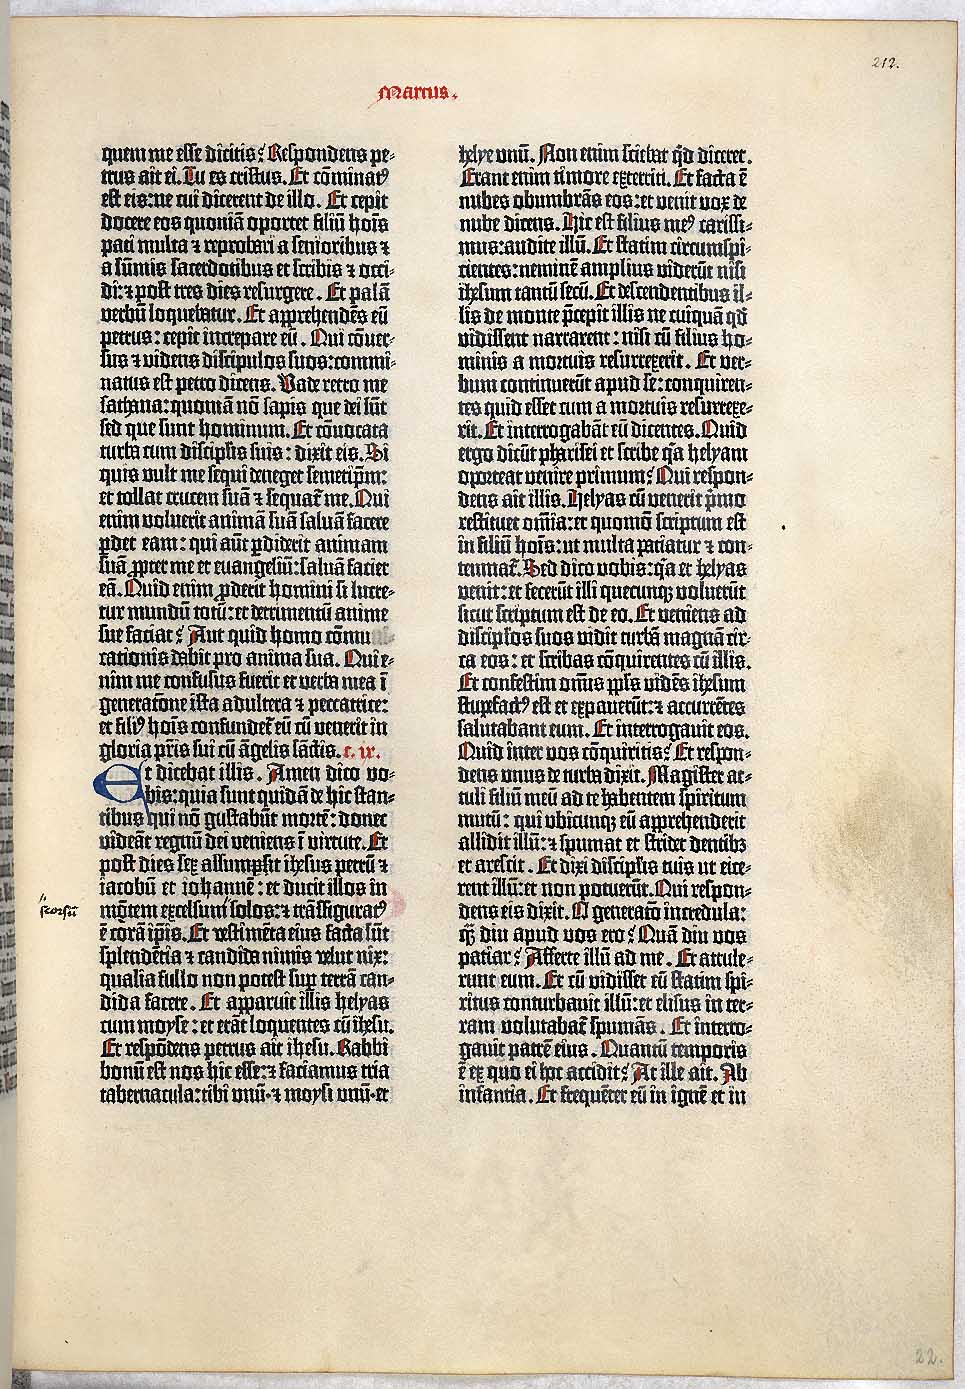 212.
Marcus.
quem me esse dicitis? Respondens pe-
trus ait ei. Tu es cristus. Et cōminatꝰ
est eis: ne cui dicerent de illo. Et cepit
docere eos quoniā oportet filiū hoīs
pati multa ⁊ reprobari a senioribus ⁊
a sūmis sacerdotibus et scribis ⁊ occi-
di: ⁊ post tres dies resurgere. Et palā
verbū loquebatur. Et apprehendēs eū
petrus: cepit increpare eū. Qui cōver-
sus ⁊ videns discipulos suos: commi-
natus est petro dicens. Vade retro me
sathana: quoniā nō sapis que dei sūt
sed que sunt hominum. Et cōvocata
turba cum discipl̄is suis: dixit eis. Si
quis vult me sequi deneget semetip̄m:
et tollat crucem suā ⁊ sequat̄ me. Qui
enim voluerit animā suā salvā facere
ꝑdet eam: qui aūt ꝑdiderit animam
suā ꝓpter me et euangeliū: salvā faciet
eā. Quid enim ꝓderit homini si lucre-
tur mundū totū: et detrimentū anime
sue faciat? Aut quid homo cōmu
tationis dabit pro anima sua. Qui e-
nim me confusus fuerit et verba mea ī
generatōne ista adultera ⁊ peccatrice:
et filiꝰ hoīs confundet̄ eū cū venerit in
gloria pr̄is sui cū āgelis sāctis. c. ix.
Et dicebat illis. Amen dico vo-
bis: quia sunt quidā de hic stan-
tibus qui nō gustabūt mortē: donec
videāt regnū dei veniens ī virtute. Et
post dies sex assumpsit ihesus petrū ⁊
iacobū et iohannē: et ducit illos in
mōtem excelsum solos: ⁊ trāsfiguratꝰ
seorsū
ē corā ip̄is. Et vestimēta eius facta sūt
splendētia ⁊ candida nimis velut nix:
qualia fullo non potest suꝑ terrā can-
dida facere. Et apparuit illis helyas
cum moyse: et erāt loquentes cū ihesu.
Et respōdens petrus ait ihesu. Rabbi
bonū est nos hic esse: ⁊ faciamus tria
tabernacula: tibi unū· ⁊ moysi unū· et
helye unū. Non enim sciebat qd̄ diceret.
Erant enim timore exterriti. Et facta ē
nubes obumbrās eos: et venit vox de
nube dicens. Hic est filius meꝰ carissi-
mus: audite illū. Et statim circumspi-
cientes: neminē amplius viderūt nisi
ihesum tantū secū. Et descendentibus il-
lis de monte p̄cepit illis ne cuiquā qd̄
vidissent narrarent: nisi cū filius ho-
minis a mortuis resurrexerit. Et ver-
bum continuerūt apud se: conquiren-
tes quid esset cum a mortuis resurrexe-
rit. Et interrogabāt eū dicentes. Quid
ergo dicūt pharisei et scribe qa helyam
oporteat venire primum? Qui respon-
dens ait illis. Helyas cū venerit p̄mo
restituet om̄ia: et quomō scriptum est
in filiū hoīs: ut multa patiatur ⁊ con-
temnat̄. Sed dico vobis: qa et helyas
venit: et fecerūt illi quecunqꝫ voluerūt
sicut scriptum est de eo. Et veniens ad
discipl̄os suos vidit turbā magnā cir-
ca eos: et scribas cōquirentes cū illis.
Et confestim om̄is pp̄ls vidēs ihesum
stupefactꝰ est et expaverūt: ⁊ accurrētes
salutabant eum. Et interrogavit eos.
Quid inter vos cōquiritis? Et respon-
dens unus de turba dixit. Magister at-
tuli filiū meū ad te habentem spiritum
mutū: qui ubicunqꝫ eū apprehenderit
allidit illū: ⁊ spumat et stridet dentibꝫ
et arescit. Et dixi discipl̄is tuis ut eice-
rent illū: et non potuerūt. Qui respon-
dens eis dixit. O generatō incredula:
qm̄ diu apud vos ero? Quā diu vos
patiar? Afferte illū ad me. Et attule-
runt eum. Et cū vidisset eū statim spi-
ritus conturbavit illū: et elisus in ter-
ram volutabat̄ spumās. Et interro-
gavit patrē eius. Quantū temporis
ē ex quo ei hoc accidit? At ille ait. Ab
infantia. Et frequēter eū in ignē et in
22.